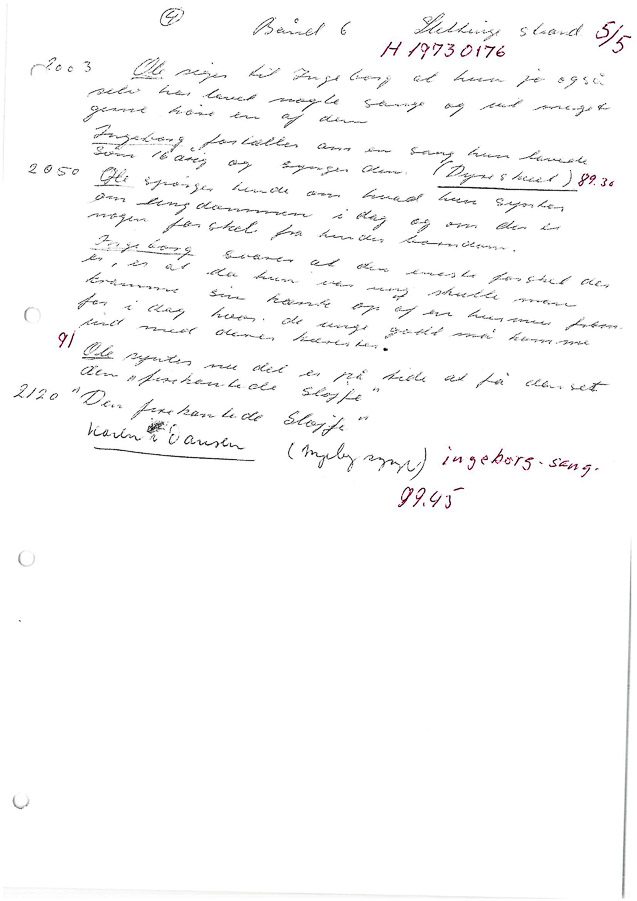 ④ Bånd 6 Stettinge strand 5/5
H 19730176
2003 Ole siger til Ingeborg at hun jo også
selv har lavet nogle sange og vil meget
gerne høre en af dem
Ingeborg fortæller om en sang hun lavede
som 16 årig og synger den. (Dyreskuet) 89.30
2050 Ole spørger hende om hvad hun syntes
om ungdommen i dag og om der er
nogen forskel fra hendes barndom.
Ingeborg svarer at den eneste forskel der
er, er at da hun var ung skulle man
kramme sin kæreste op af en husmur
for i dag hvor de unge godt må komme
ind med deres kærester.
91
Ole syntes nu det er på tide at få danset
den "firkantede sløjfe"
2120 "Den firkantede Sløjfe"
Karen i Dansen (Ingeborg synger) ingeborg-sang.
99.45